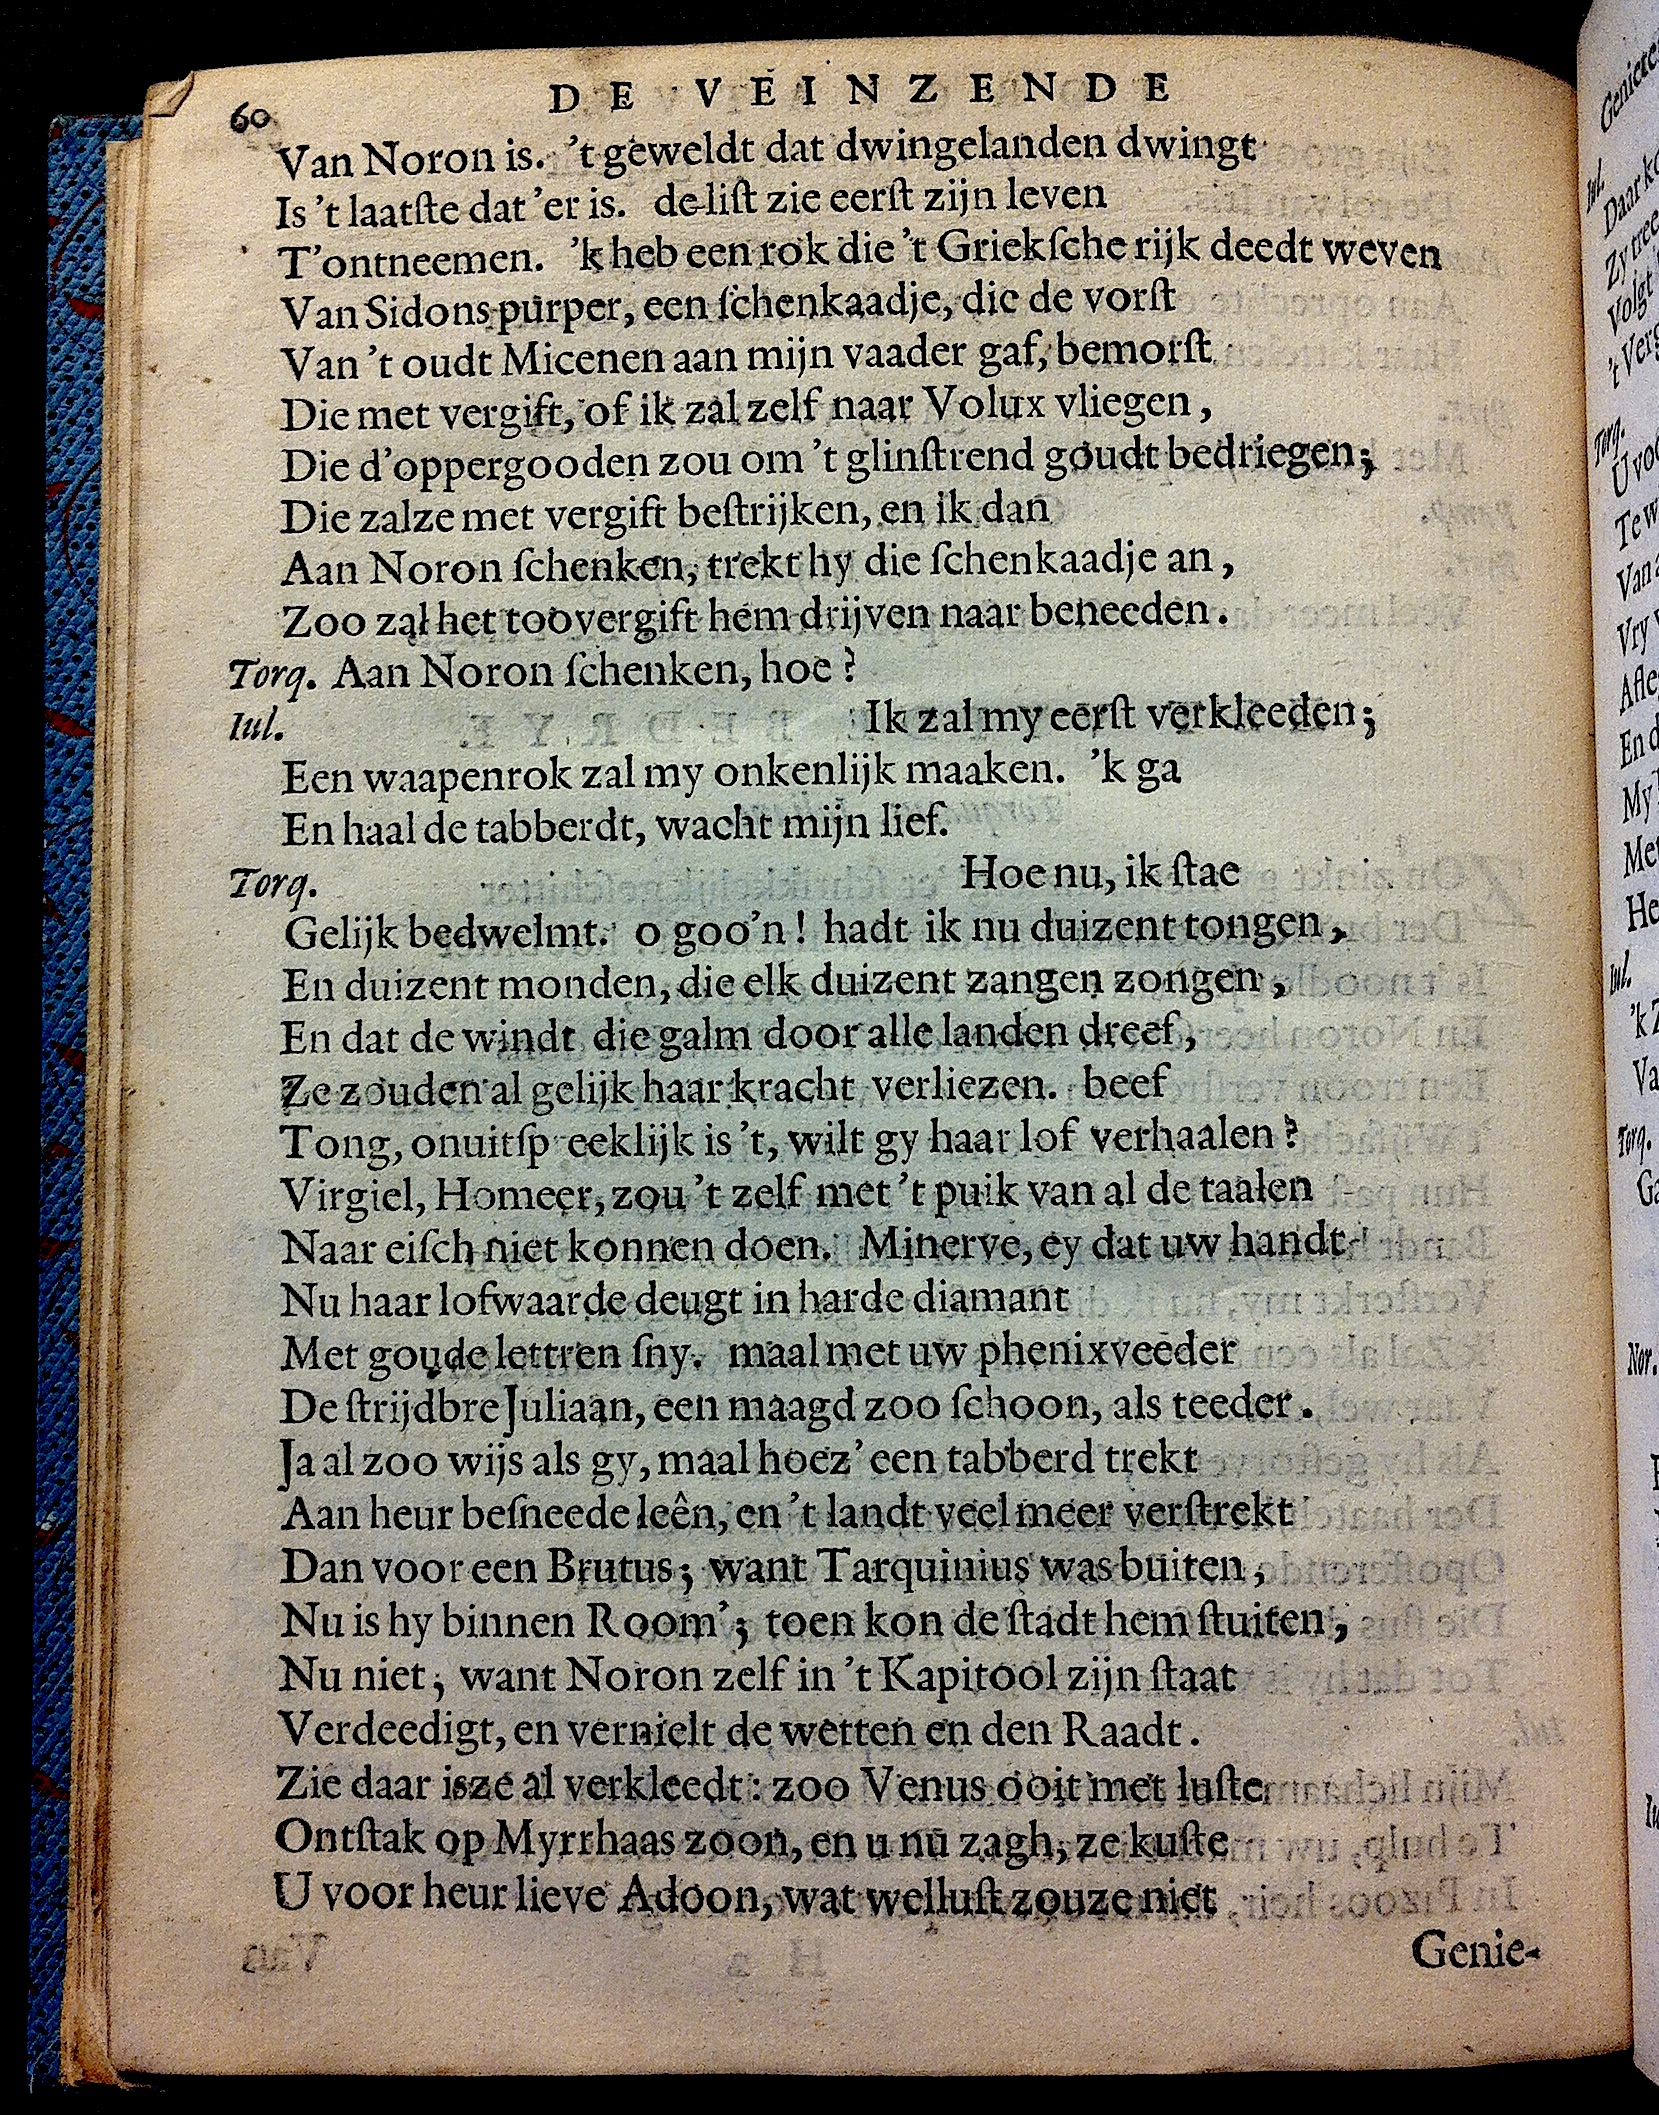 60 DE VEINZENDE
Van Noron is. 't geweldt dat dwingelanden dwingt
Is 't laatſte dat 'er is. de liſt zie eerſt zijn leven
T'ontneemen. 'k heb een rok die 't Griekſche rijk deedt weven
Van Sidons purper, een ſchenkaadje, die de vorſt
Van 't oudt Micenen aan mijn vaader gaf, bemorſt
Die met vergift, of ik zal zelf naar Volux vliegen,
Die d'oppergooden zou om 't glinſtrend goudt bedriegen;
Die zalze met vergift beſtrijken, en ik dan
Aan Noron ſchenken, trekt hy die ſchenkaadje an,
Zoo zal het toovergift hem drijven naar beneeden.
Torq. Aan Noron ſchenken, hoe?
Iul. Ik zal my eerſt verkleeden;
Een waapenrok zal my onkenlijk maaken. 'k ga
En haal de tabberdt, wacht mijn lief.
Torq. Hoe nu, ik ſtae
Gelijk bedwelmt. o goo'n! hadt ik nu duizent tongen,
En duizent monden, die elk duizent zangen zongen,
En dat de windt die galm door alle landen dreef,
Ze zouden al gelijk haar kracht verliezen. beef
Tong, onuitſp eeklijk is 't, wilt gy haar lof verhaalen?
Virgiel, Homeer, zou 't zelf met 't puik van al de taalen
Naar eiſch niet konnen doen. Minerve, ey dat uw handt
Nu haar lofwaarde deugt in harde diamant
Met goude lettren ſny. maal met uw phenixveeder
De ſtrijdbre Juliaan, een maagd zoo ſchoon, als teeder.
Ja al zoo wijs als gy, maal hoez' een tabberd trekt
Aan heur beſneede leên, en 't landt veel meer verſtrekt
Dan voor een Brutus; want Tarquinius was buiten,
Nu is hy binnen Room'; toen kon de ſtadt hem ſtuiten,
Nu niet; want Noron zelf in 't Kapitool zijn ſtaat
Verdeedigt, en vernielt de wetten en den Raadt.
Zie daar isze al verkleedt: zoo Venus ooit met luſte
Ontſtak op Myrrhaas zoon, en u nu zagh, ze kuſte
U voor heur lieve Adoon, wat welluſt zouze niet
Genie-